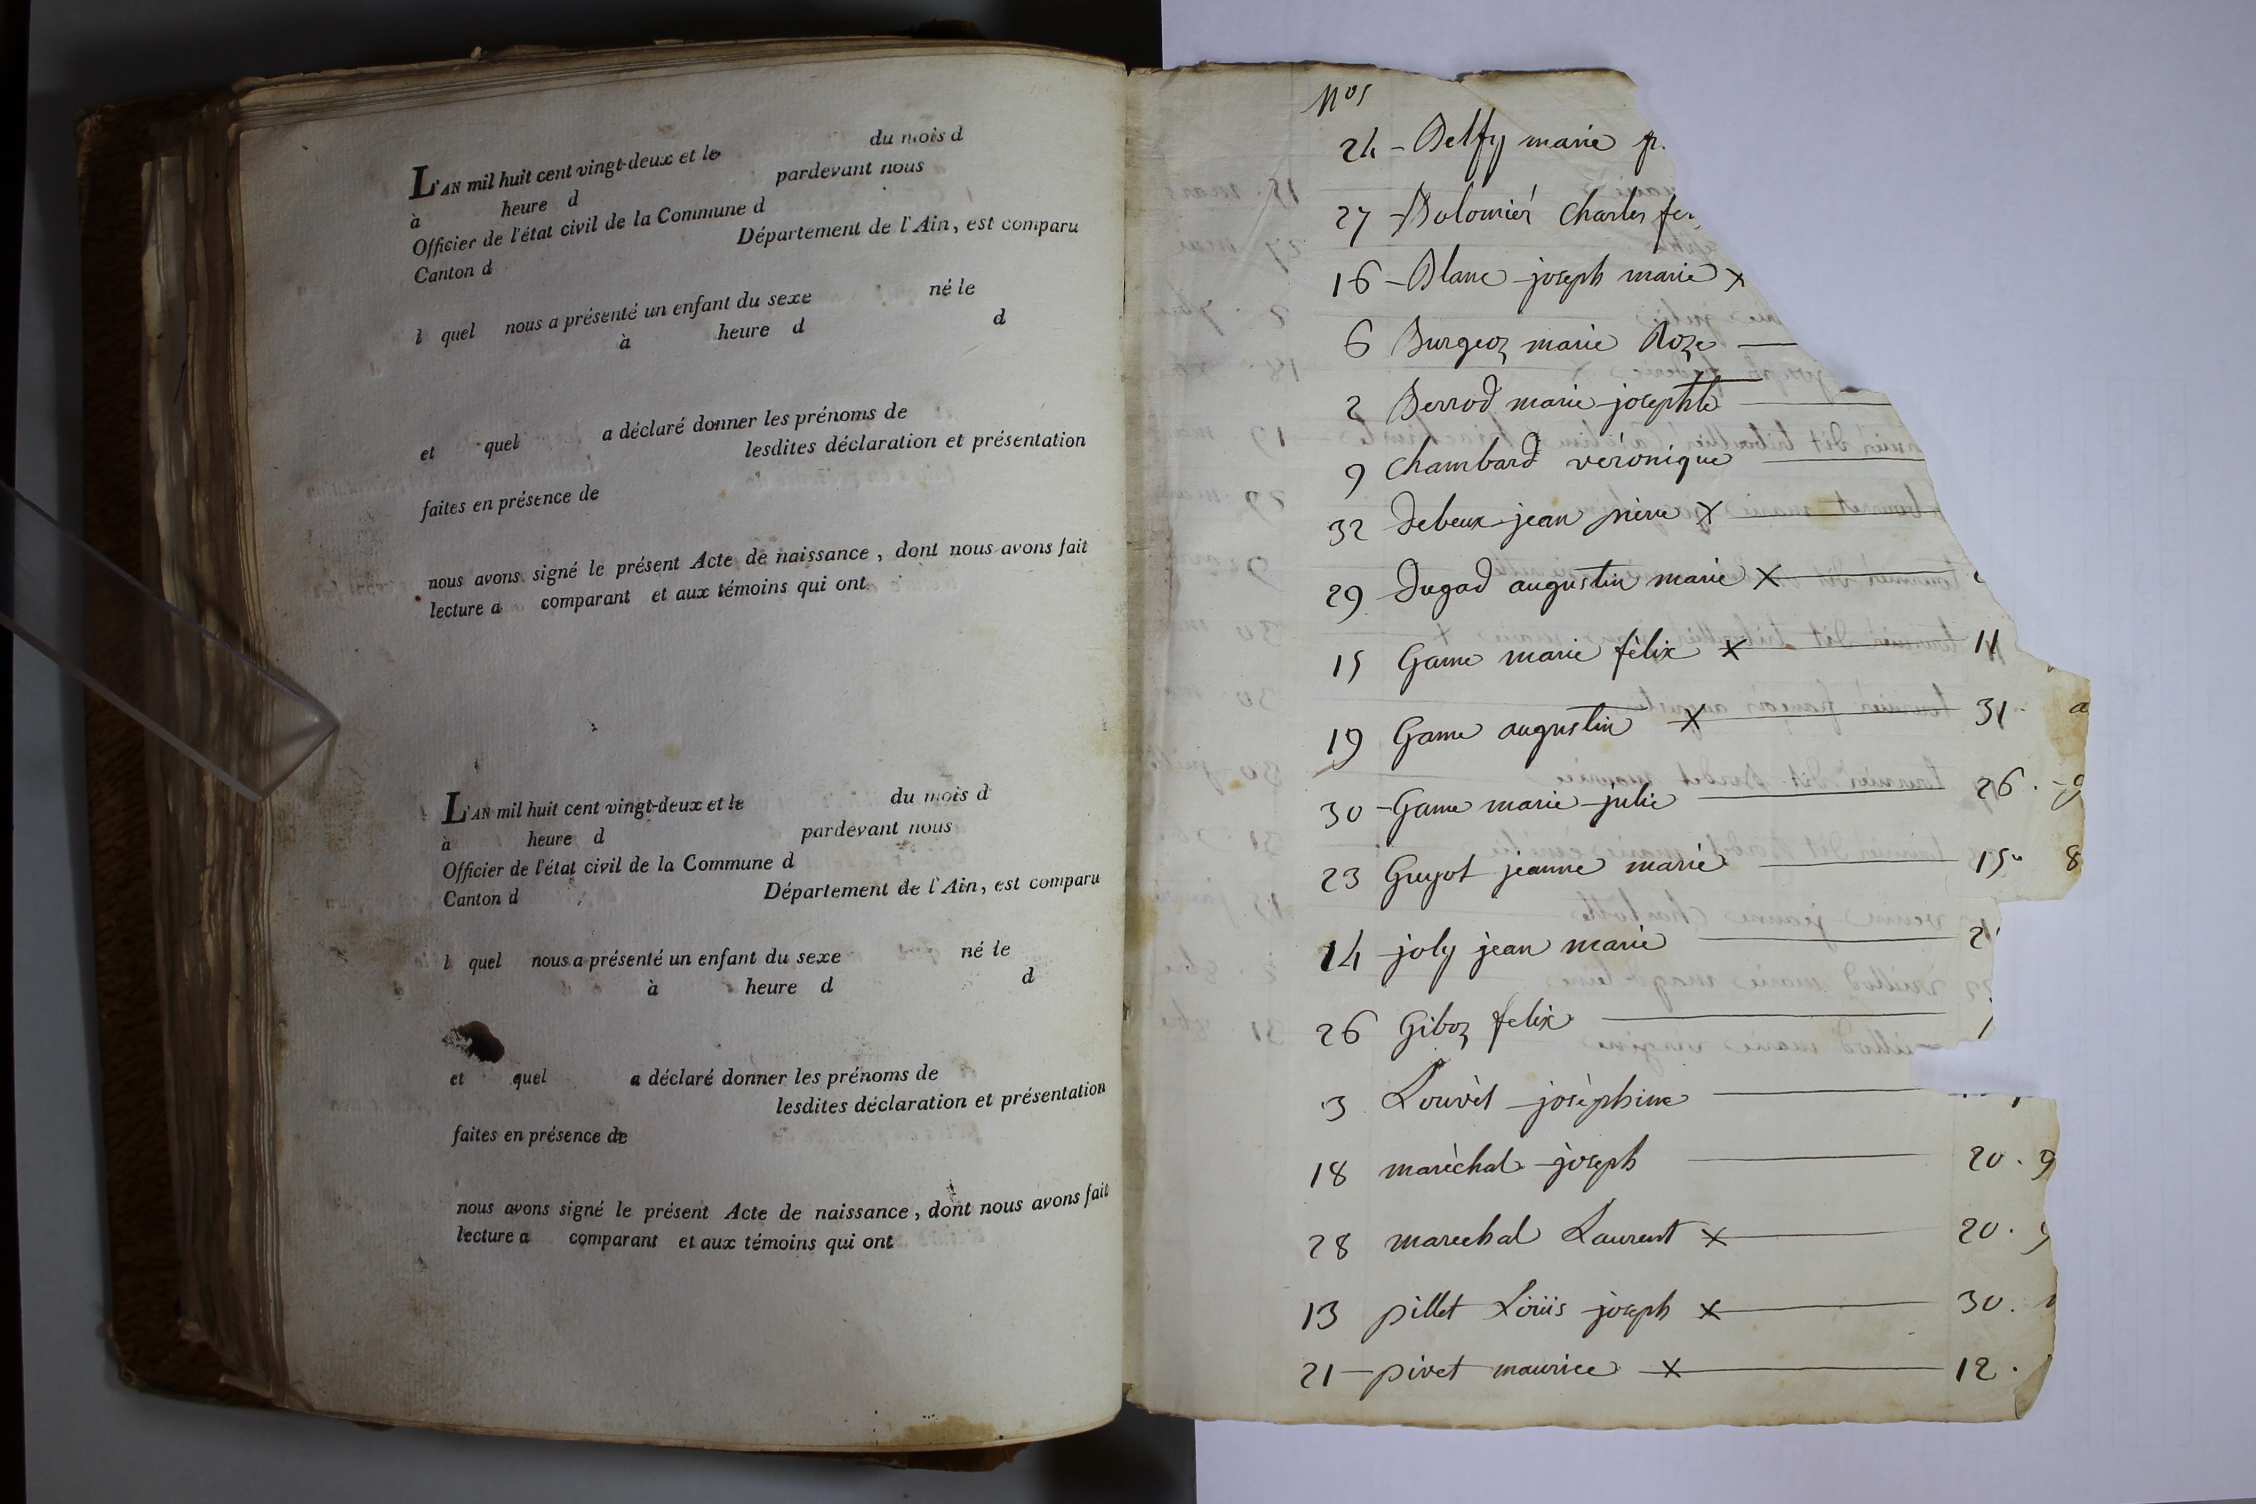 L'AN mil huit cent vingt-deux et le du mois d
à heure d pardevant nous
Officier de l'état civil de la Commune d
Canton d Département de l'Ain, est comparu
l quel nous a présenté un enfant du sexe né le
à heure d d
et quel a déclaré donner les prénoms de
lesdites déclaration et présentation
faites en présence de
nous avons signé le présent Acte de naissance, dont nous avons fait
lecture a comparant et aux témoins qui ont
L'AN mil huit cent vingt-deux et le du mois d
à heure d pardevant nous
Officier de l'état civil de la Commune d
Canton d Département de l'Ain, est comparu
l quel nous a présenté un enfant du sexe né le
à heure d d
et quel a déclaré donner les prénoms de
lesdites déclaration et présentation
faites en présence de
nous avons signé le présent Acte de naissance, dont nous avons fait
lecture a comparant et aux témoins qui ont
Nos
24 - marie
27 - Charles
16 - Blanc joseph marie x
6 Burgoz marie Roze
2 Berrod marie josephte
9 chambard véronique
32 debeux jean pierre x
29 dugad augustin marie x
15 Game marie félix x 11
19 Game augustin x 31
30 - Game marie julie 26
23 Guyot jeanne marie 15 8
14 joly jean marie
26 Giboz felix
3 Louvet joséphine
18 maréchal joseph 20 . 9
28 marechal Laurent x 20 .
13 pillet Loüis joseph x 30 .
21 - pivet maurice x 12 .